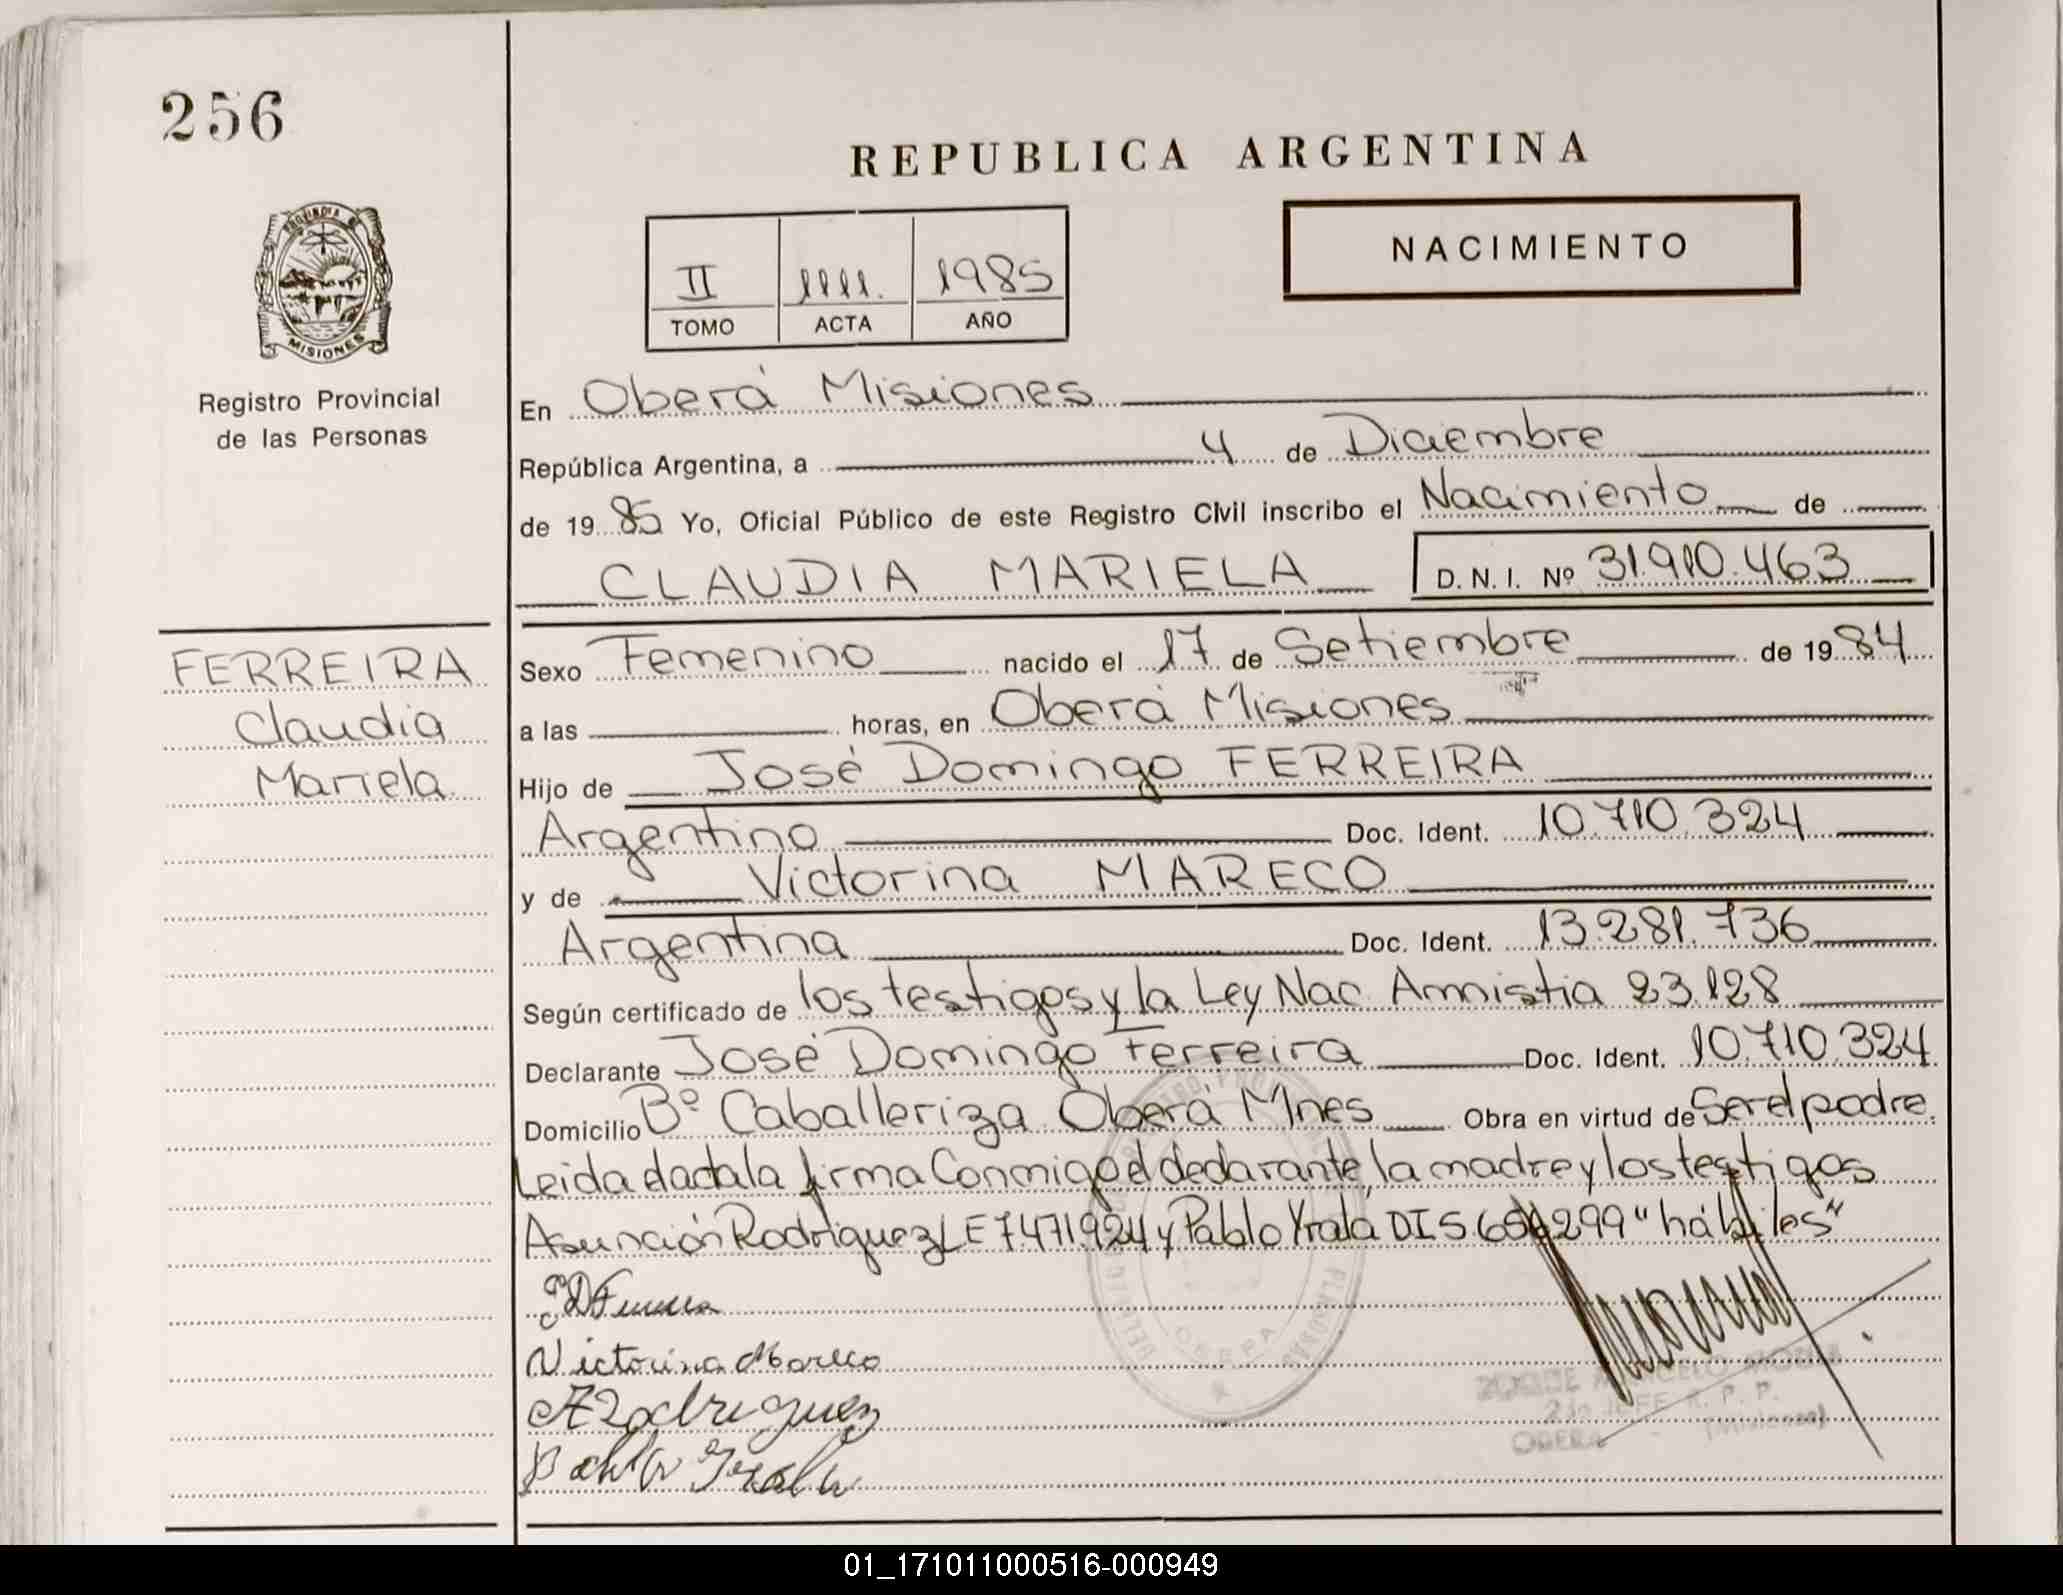 256
REPUBLICA ARGENTINA
NACIMIENTO
II 1111. 1985
TOMO ACTA AÑO
PROVINCIA DE
MISIONES
Registro Provincial
de las Personas
FERREIRA
Claudia
Mariela
En Oberá Misiones
República Argentina, a 4 de Diciembre
de 19 85 Yo, Oficial Público de este Registro Civil inscribo el Nacimiento de
CLAUDIA MARIELA D. N. I. Nº 31.910.463
Sexo Femenino nacido el 17 de Setiembre de 19 84
a las horas, en Oberá Misiones
Hijo de José Domingo FERREIRA
Argentino Doc. Ident. 10.710.324
y de Victorina MARECO
Argentina Doc. Ident. 13.281.736
Según certificado de los testigos y la Ley Nac Amnistia 23.128
Declarante José Domingo Ferreira Doc. Ident. 10.710.324
Domicilio Bº Caballeriza Oberá Mnes Obra en virtud de Ser el padre
Leida el acta la firma Conmigo el declarante, la madre y los testigos
Asunción Rodriguez LE 7471924 y Pablo Yrala DI 5 299 "hábiles"
JD Ferreira
Victorina Mareco
A Rodriguez
Pablo Yrala
OBERA
JEFE R. P. P.
OBERA (Misiones)
01_171011000516-000949